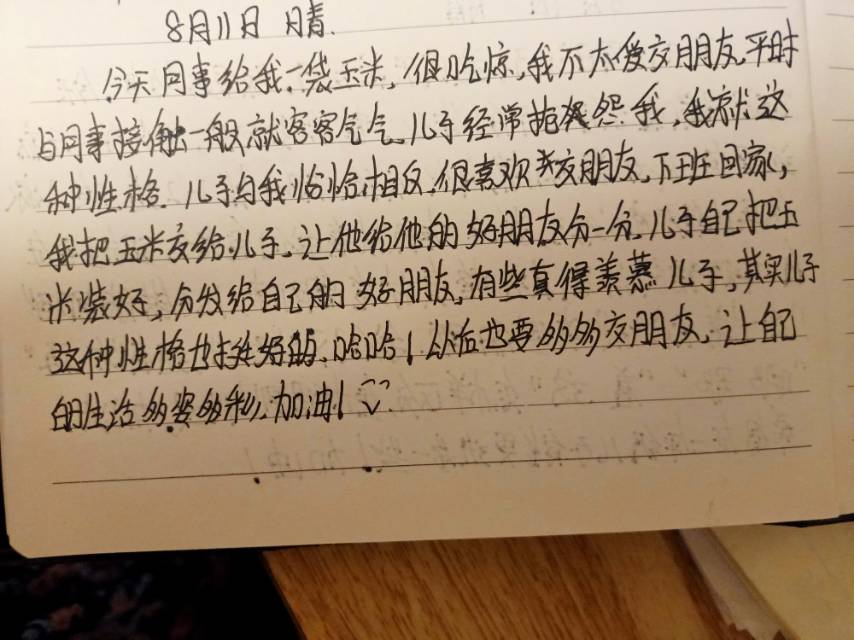 8月11日 晴.
今天同事给我一袋玉米,很吃惊,我不太爱交朋友,平时
与同事接触一般就客客气气,儿子经常抱怨我,我就这
种性格.儿子与我恰恰相反,很喜欢交朋友,下班回家,
我把玉米交给儿子,让他给他的好朋友分一分.儿子自己把玉
米装好,分发给自己的好朋友,有些真得羡慕儿子,其实儿子
这种性格也挺好的,哈哈!以后也要多多交朋友,让自己
的生活多姿多彩,加油!